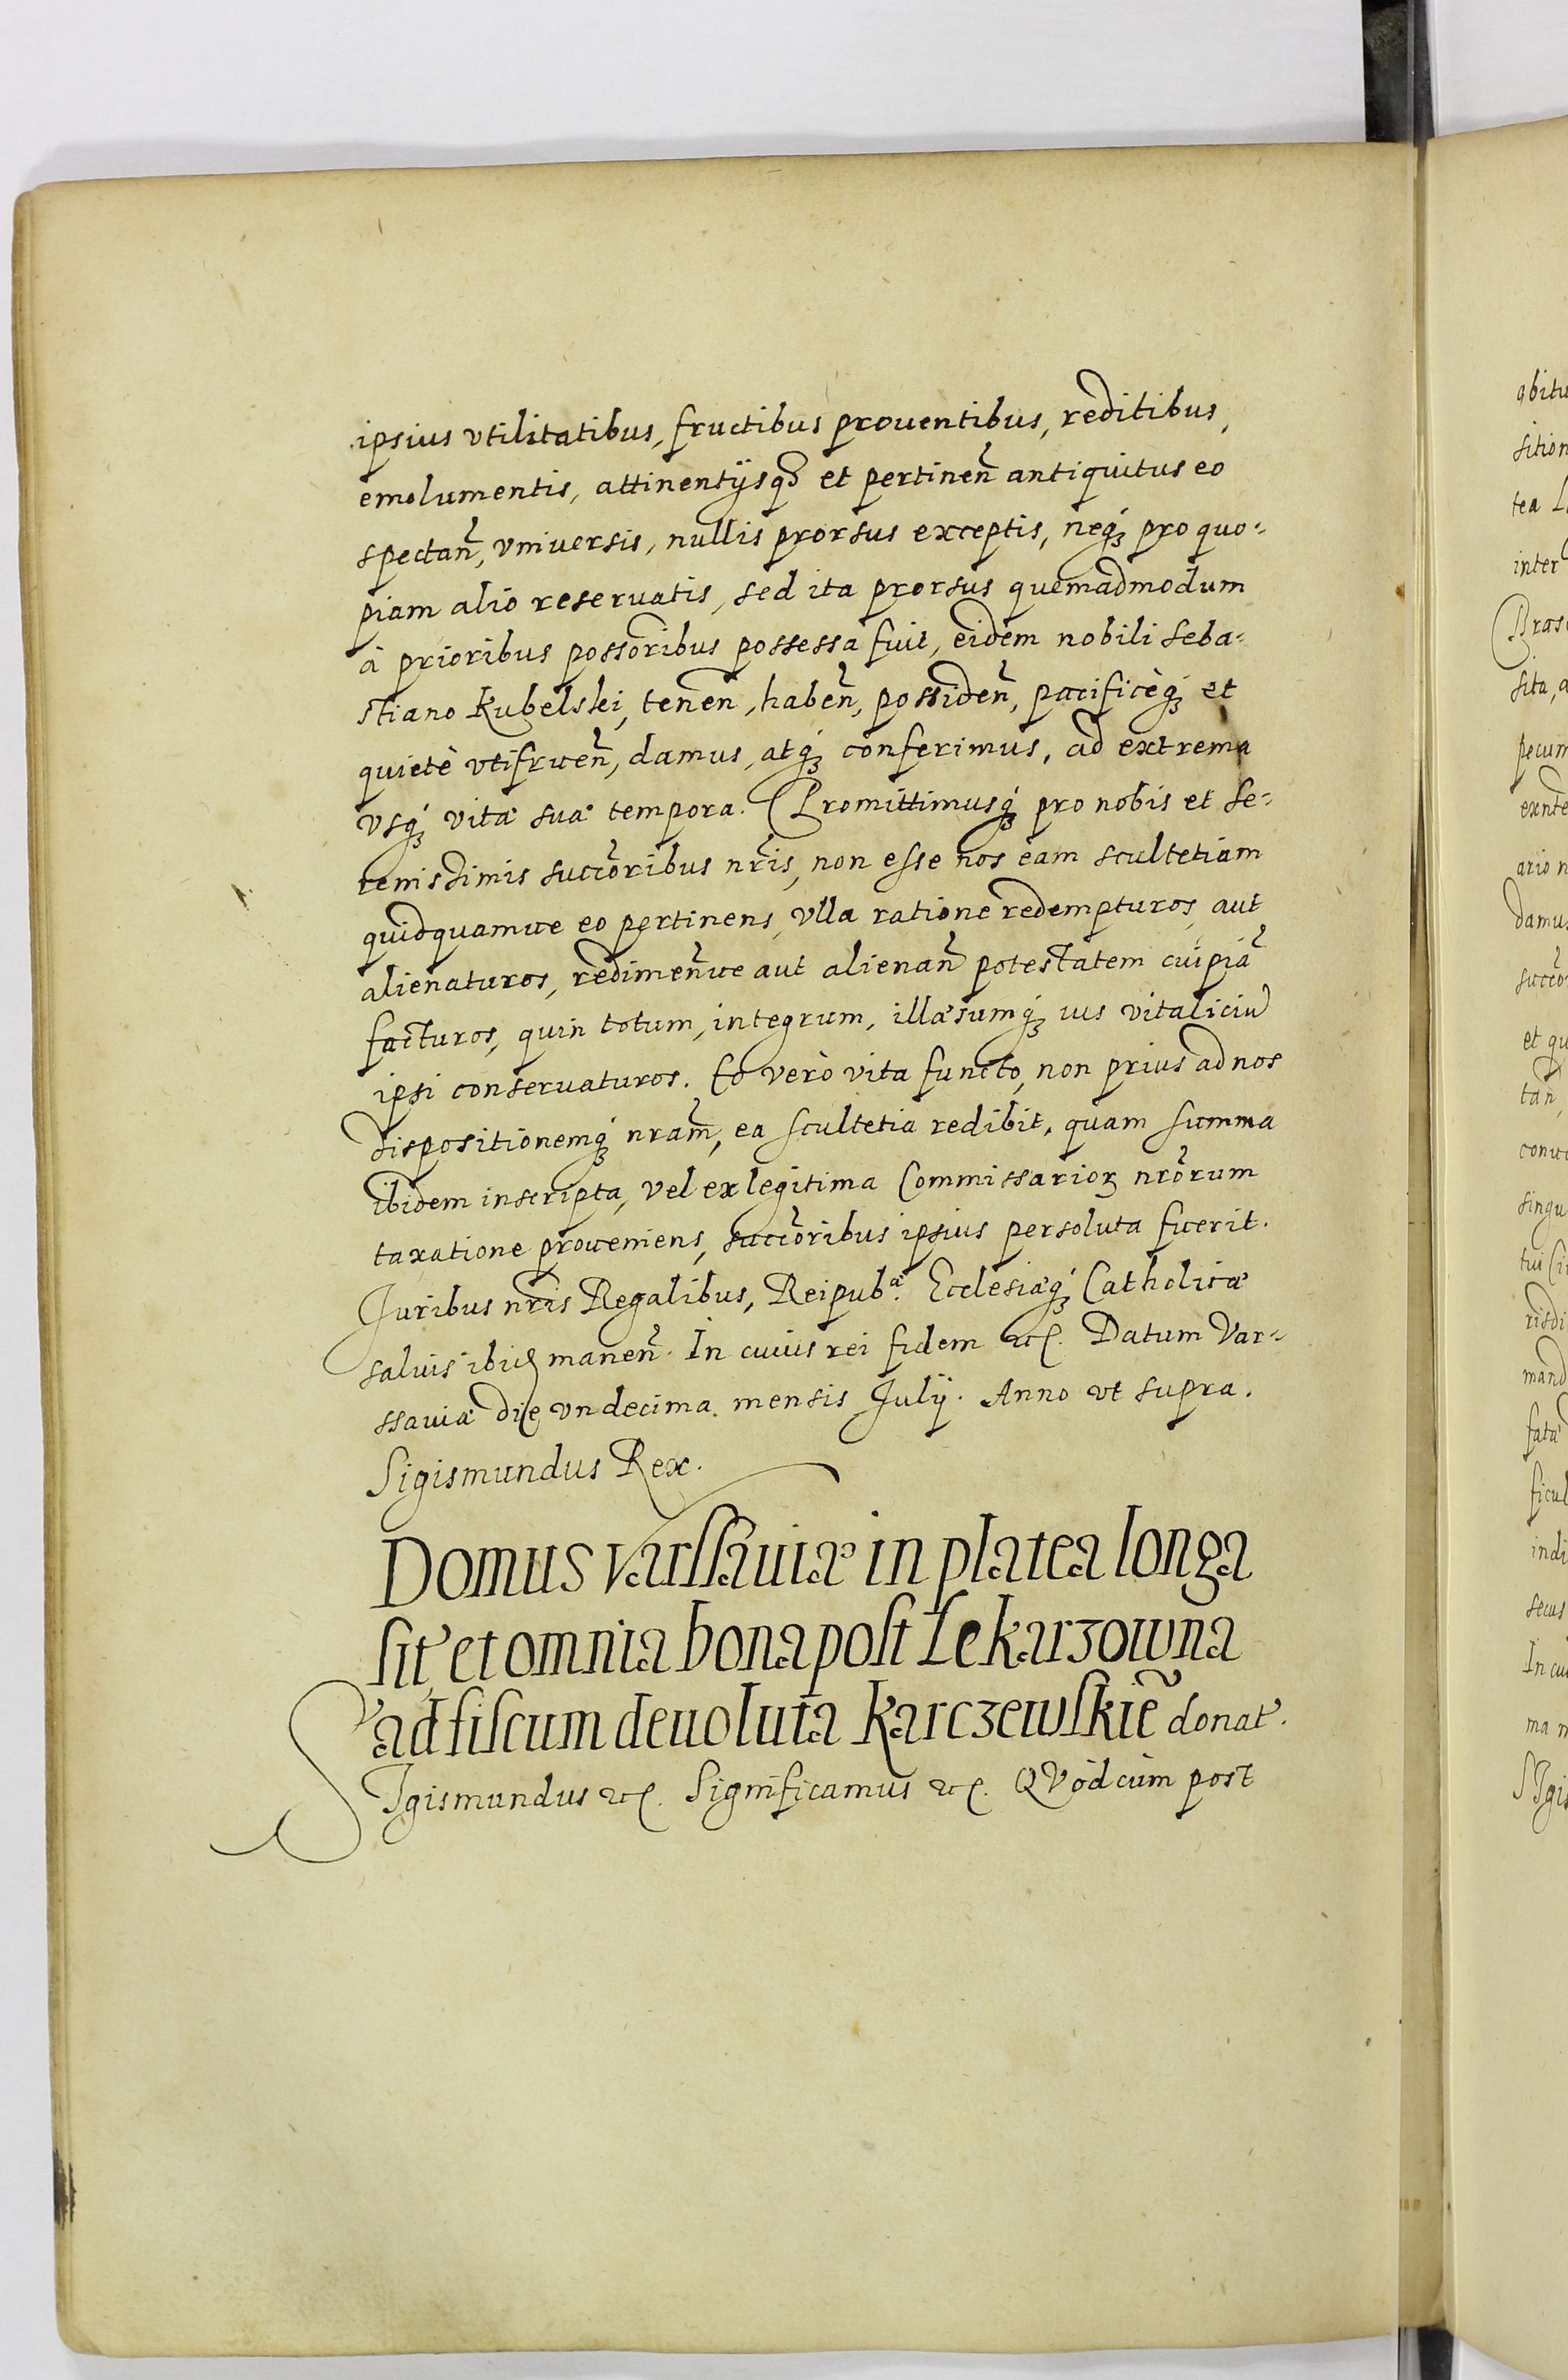 ipsius vtilitatibus, fructibus prouentibus, reditibus,
emolumentis, attinentijsq; et pertinen̄ antiquitus eo
spectan̄, vniuersis, nullis prorsus exceptis, neq; pro quo-
piam alio reseruatis, sed ita prorsus quemadmodum
à prioribus possõribus possessa fuit, eidem nobili Seba-
stiano Kubelski, tenen̄, haben̄, possiden̄, pacificèq; et
quietè vtifruen̄, damus, atq; conferimus, ad extrema
vsq; vitæ suæ tempora. Promittimusq; pro nobis et Se-
renissimis succõribus nr̃is, non esse nos eam scultetiam
quidquamue eo pertinens, vlla ratione redempturos, aut
alienaturos, redimen̄ue aut alienan̄ potestatem cuipiã
facturos, quin totum, integrum, illæsumq; ius vitaliciũ
ipsi conseruaturos. Eo verò vita functo, non prius ad nos
dispositionemq; nram̄, ea scultetia redibit, quam summa
ibidem inscripta, vel ex legitima Commissarioꝝ nrõrum
taxatione proueniens, succõribus ipsius persoluta fuerit.
Juribus nr̃is Regalibus, Reipubæ. Ecclesiæq; Catholicæ
saluis ibid manen̄. In cuius rei fidem etc. Datum Var-
ssauiæ die vndecima mensis Julij. Anno vt supra.
Sigismundus Rex.
Domus Varssauiæ in platea longa
sit' et omnia bona post Lekarzowna
ad fiscum deuoluta Karczewskiẽ donat'.
SIgismundus etc. Significamus etc. QVòd cùm post
abitu
sition
tea L
inter
Bras
sita, a
pecun
exnte
ario n
damus
succõ
et qu
tan̄,
conue
singu
tui Ci
risdi
mand
fatã
ficul
indi
secus
In cui
ma m
SIgis